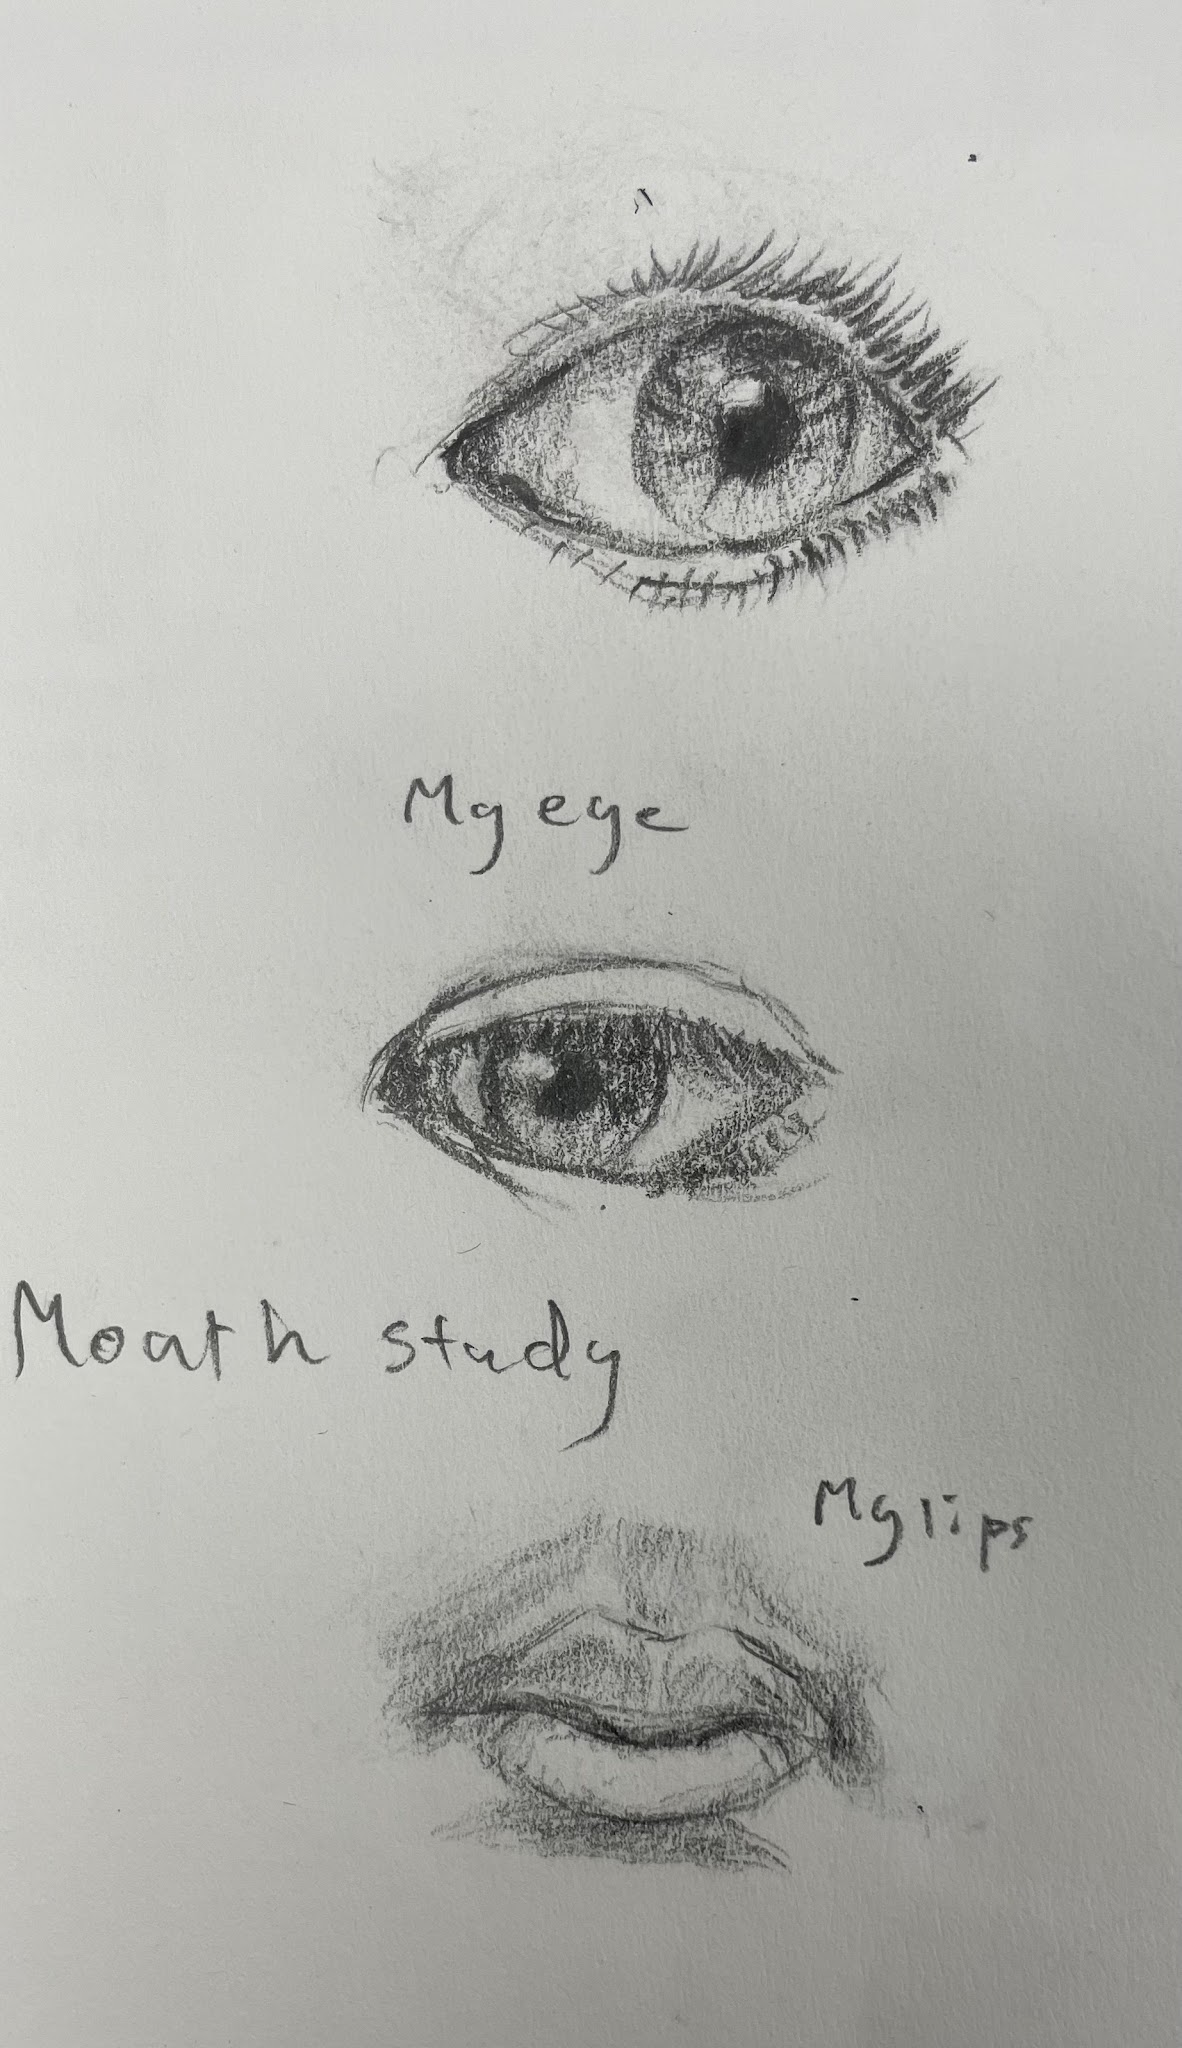 My eye
Mouth study
My lips